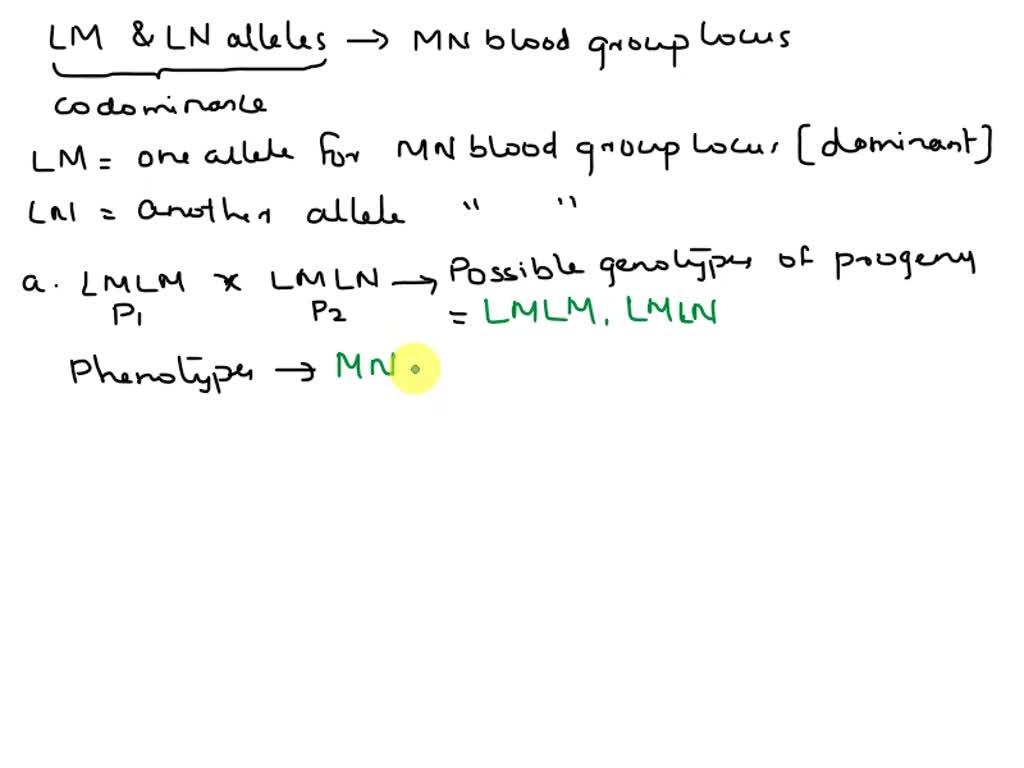 LM & LN alleles → MN blood group locus
codominance
LM = one allele for MN blood group locus [dominant]
LN = another allele " "
a. LMLM x LMLN → Possible genotypes of progeny
P1 P2 = LMLM, LMLN
Phenotypes → MN